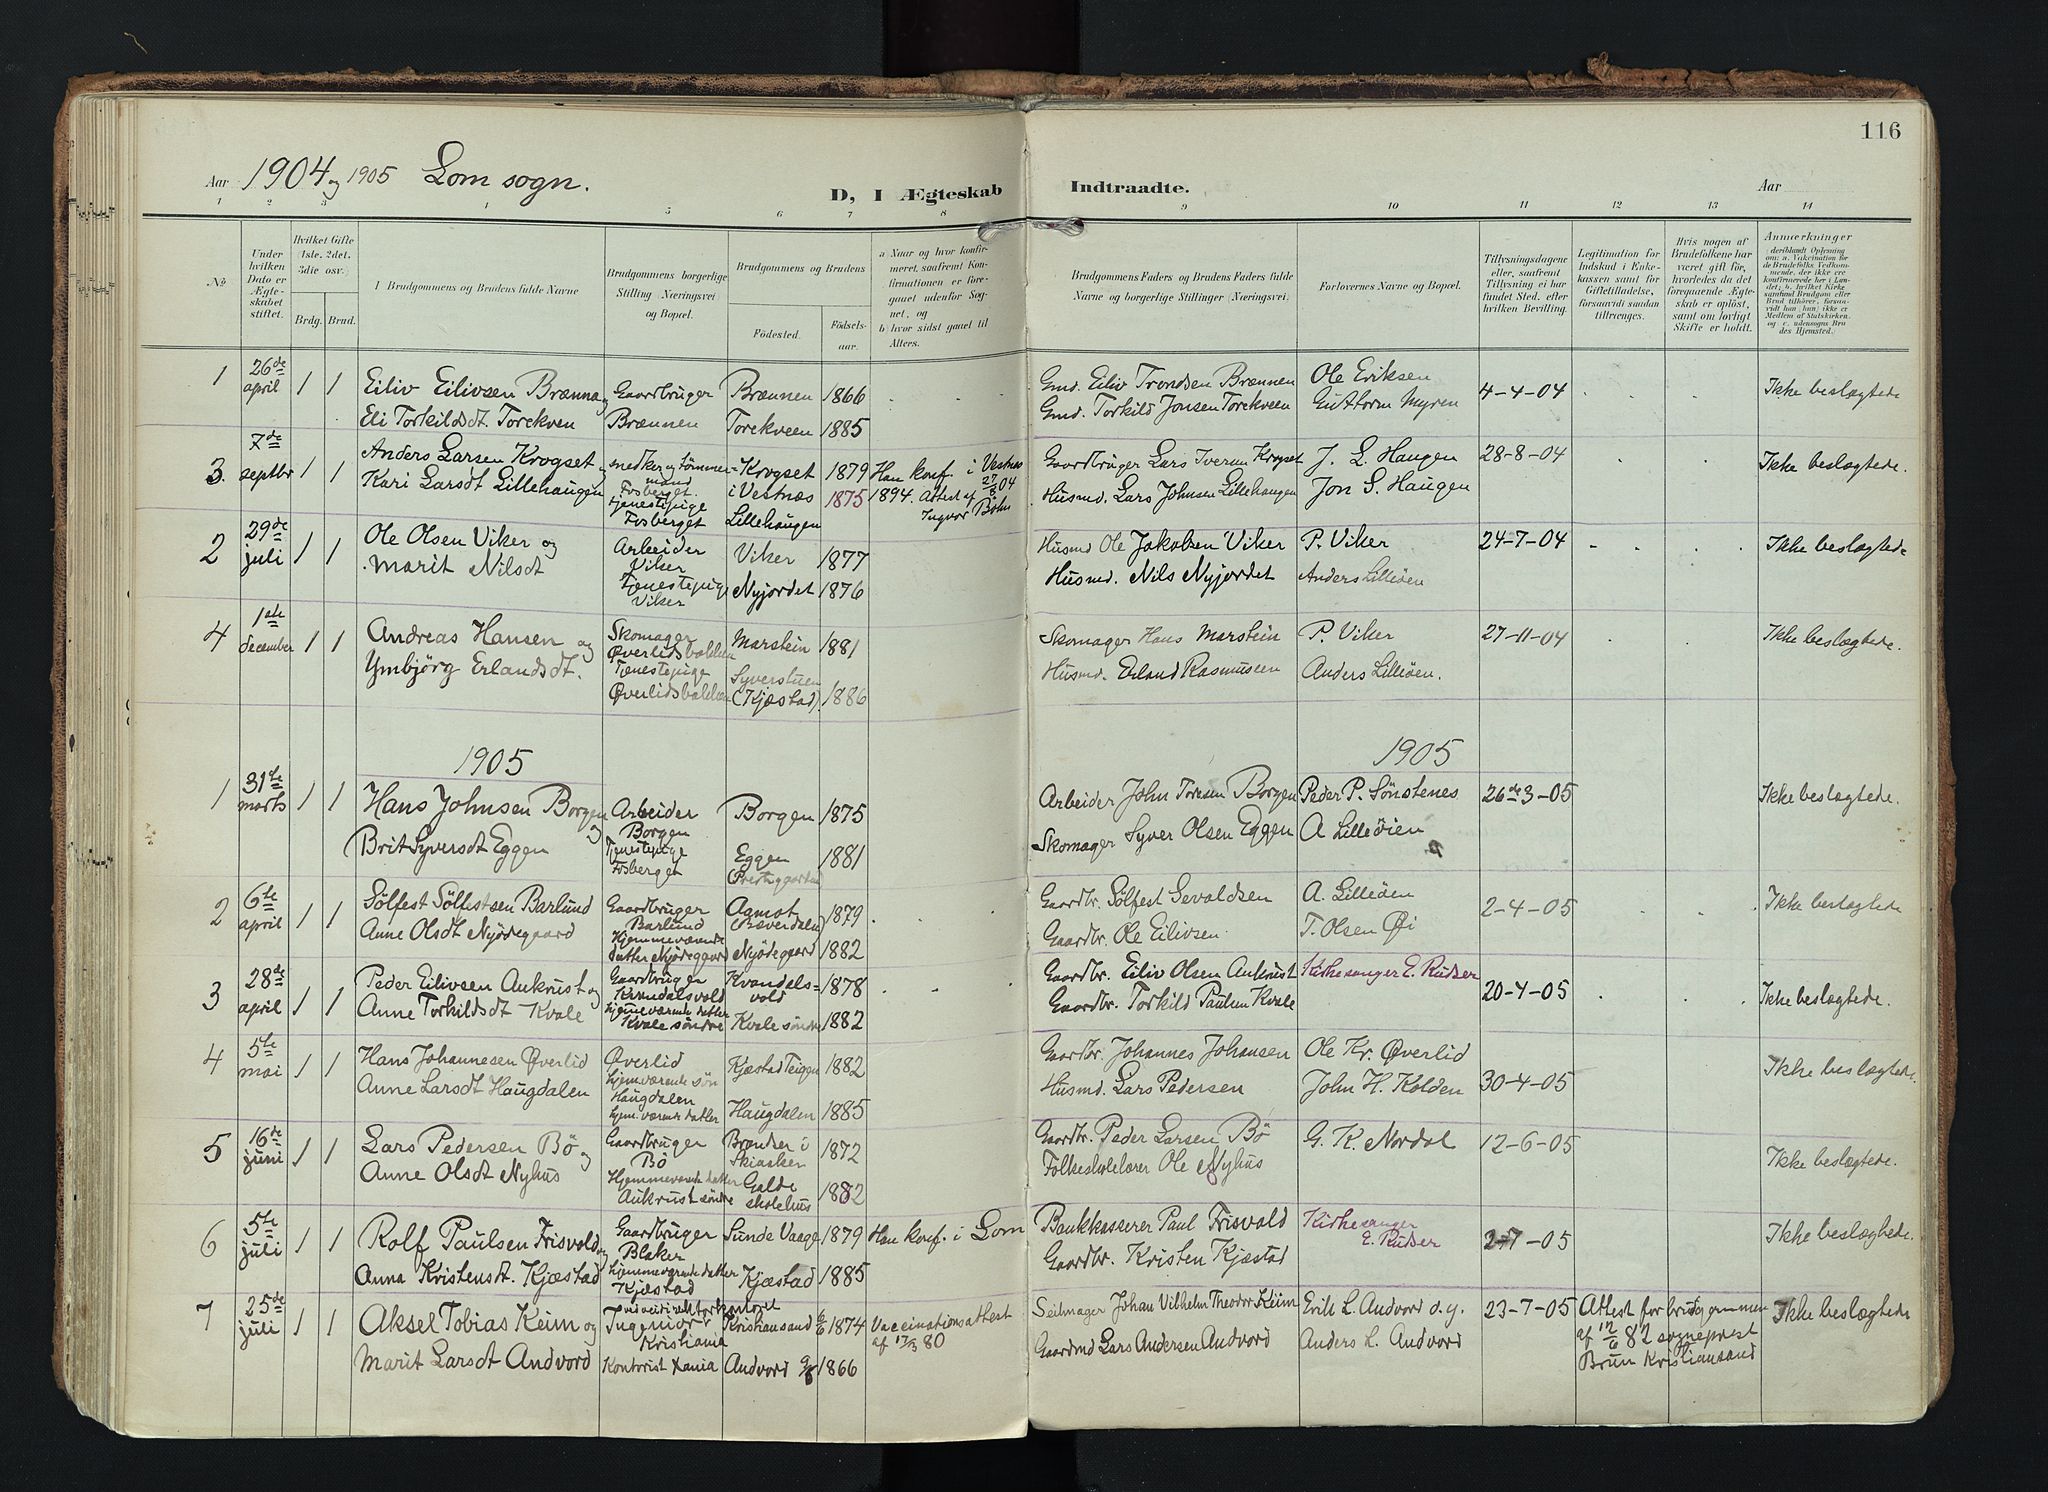 116
Aar 1904 og 1905 Lom sogn.
D, I Ægteskab Indtraadte. Aar
1 2 3 4 5 6 7 8 9 10 11 12 13 14
No
Under hvilken Dato er Ægteskabet stiftet.
Hvilket Gifte (1ste, 2det, 3die osv.)
Brdg. Brud.
Brudgommens og Brudens fulde Navne
Brudgommens borgerlige Stilling (Næringsvei) og Bopæl.
Brudgommens og Brudens
Fødested. Fødselsaar.
a) Naar og hvor konfirmeret, saafremt Konfirmationen er foregaaet udenfor Sognet, og
b) hvor sidst gaaet til Alters.
Brudgommens Faders og Brudens Faders fulde Navne og borgerlige Stillinger (Næringsvei)
Forlovernes Navne og Bopæl.
Tillysningsdagene eller, saafremt Tillysning ei har fundet Sted, efter hvilken Bevilling.
Legitimation for Indskud i Enkekassen samt for Giftetilladelse, forsaavidt saadan tiltrænges.
Hvis nogen af Brudefolkene har været gift før, hvorledes da det foregaaende Ægteskab er opløst, samt om lovligt Skifte er holdt.
Anmærkninger
1 26de april 1 1 Eiliv Eilivsen Brænna og Gaardbruger Brænnen 1866 Gmd. Eiliv Trondsen Brænnen Ole Eriksen 4-4-04 Ikke beslægtede
Eli Torkildsdt. Torekven Brænnen Torekveen 1885 Gmd. Torkild Jonsen Torekveen Guttorm Myren
3. 7de septbr 1 1 Anders Larsen Krogset og snedker og tømmermand Fosberget Krogset i Vestnæs 1879 Han konf. i Vestnes 1894. Attest af Ingvor Bøhn Gaardbruger Lars Iversen Krogset J. L. Haugen 28-8-04 Ikke beslægtede.
Kari Larsdt Lillehaugen tjenestepige Fosberget Lillehaugen 1875 Husmd. Lars Johnsen Lillehaugen Jon S. Haugen
2 29de juli 1 1 Ole Olsen Viker og Arbeider Viker Viker 1877 Husmd Ole Jakobsen Viker P. Viker 24-7-04 Ikke beslægtede
Marit Nilsdt Tjenestepige Viker Nyjordet 1876 Husmd. Nils Nyjordet Anders Lilleøen
4 1ste december 1 1 Andreas Hansen og Skomager Øverlidsbakken Marstein 1881 Skomager Hans Marstein P. Viker 27-11-04 Ikke beslægtede.
Ymbjörg Erlandsdt. Tjenestepige Øverlidsbakken Syverstuen (Kjæstad). 1886 Husmd. Erland Rasmussen Anders Lilleöen.
1905 1905
1 31te marts 1 1 Hans Johnsen Borgen og Arbeider Borgen Borgen 1875 Arbeider John Toresen Borgen Peder P. Sönstenes 26de 3-05 Ikke beslægtede.
Brit Syversdt Eggen Tjenestepige Fosberget Eggen 1881 Skomager Syver Olsen Eggen A Lilleöien
2 6te april 1 1 Sölfest Sölfestsen Barlund Gaardbruger Barlund Aamot (Bæverdalen) 1879 Gaardbr. Sölfest Sevaldsen A. Lilleöen 2-4-05 Ikke beslægtede
Anne Olsdt Nyödegaard Hjemmeværende datter Nyödegaard Nyödegaard 1882 Gaardbr. Ole Eilivsen T. Olsen Øi
3 28de april 1 1 Peder Eilivsen Aukrust og Gaardbruger Kvandalsvold Kvandalsvold 1878 Gaardbr. Eiliv Olsen Aukrust Kirkesanger E. Rudser 20-4-05 Ikke beslægtede.
Anne Torkildsdt Kvale hjemeværende datter Kvale söndre Kvale söndre 1882 Gaardbr. Torkild Paulsen Kvale
4 5te mai 1 1 Hans Johannesen Øverlid Øverlid hjemeværende sön Kjæstad Teigen 1882 Gaardbr. Johannes Johansen Ole Kr. Øverlid 30-4-05 Ikke beslægtede.
Anne Larsdt Haugdalen Haugdalen hjem. værende datter Haugdalen 1885 Husmd. Lars Pedersen John H. Kolden
5 16de juni 1 1 Lars Pedersen Bö og Gaardbruger Bö Brandser i Skiaaker 1872 Gaardbr. Peder Larsen Bö G. K. Nordal 12-6-05 Ikke beslægtede.
Anne Olsdt Nyhus Hjemmeværende datter Aukrust söndre Galde skolehus 1882 Folkeskolelærer Ole Nyhus
6 5te juli 1 1 Rolf Paulsen Frisvold og Gaardbruger Blaker Sunde Vaage 1879 Han konf. i Lom Bankkasserer Paul Frisvold Kirkesanger E. Rudser 2-7-05 Ikke beslægtede.
Anna Kristensdt. Kjæstad hjemmeværende datter Kjæstad Kjæstad 1885 Gaardbr. Kristen Kjæstad
7 25de juli 1 1 Aksel Tobias Keim og Ingeniør Kristiania Kristiansand 6/6 1874 Vaccinationsattest af 17/3 80 Seilmager Johan Vilhelm Theodor Keim Erik L. Andvord d.y. 23-7-05 Attest for brudgommen af 12/6 82 sogneprest Brun Kristiansand Ikke beslægtede
Marit Larsdt Andvord Kontorist Xania Andvord 1866 Gaardmd Lars Andersen Andvord Anders L. Andvord